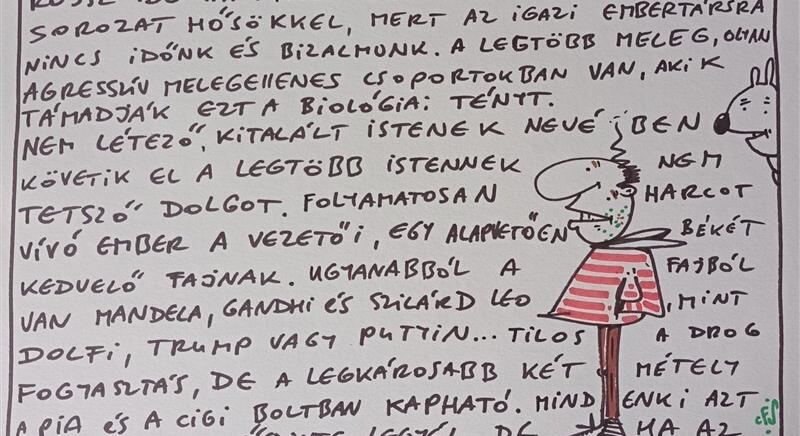 SOROZAT HŐSÖKKEL, MERT AZ IGAZI EMBERTÁRSRA
NINCS IDŐNK ÉS BIZALMUNK. A LEGTÖBB MELEG, OLYAN
AGRESSZÍV MELEGELLENES CSOPORTOKBAN VAN, AKIK
TÁMADJÁK EZT A BIOLÓGIAI TÉNYT.
NEM LÉTEZŐ, KITALÁLT ISTENEK NEVÉBEN
KÖVETIK EL A LEGTÖBB ISTENNEK NEM
TETSZŐ DOLGOT. FOLYAMATOSAN HARCOT
VÍVÓ EMBER A VEZETŐI, EGY ALAPVETŐEN BÉKÉT
KEDVELŐ FAJNAK. UGYANABBÓL A FAJBÓL
VAN MANDELA, GANDHI ÉS SZILÁRD LEO, MINT
DOLFI, TRUMP VAGY PUTYIN... TILOS A DROG
FOGYASZTÁS, DE A LEGKÁROSABB KÉT MÉTELY
A PIA ÉS A CIGI BOLTBAN KAPHATÓ. MINDENKI AZT
LEGYÉL DE HA AZ